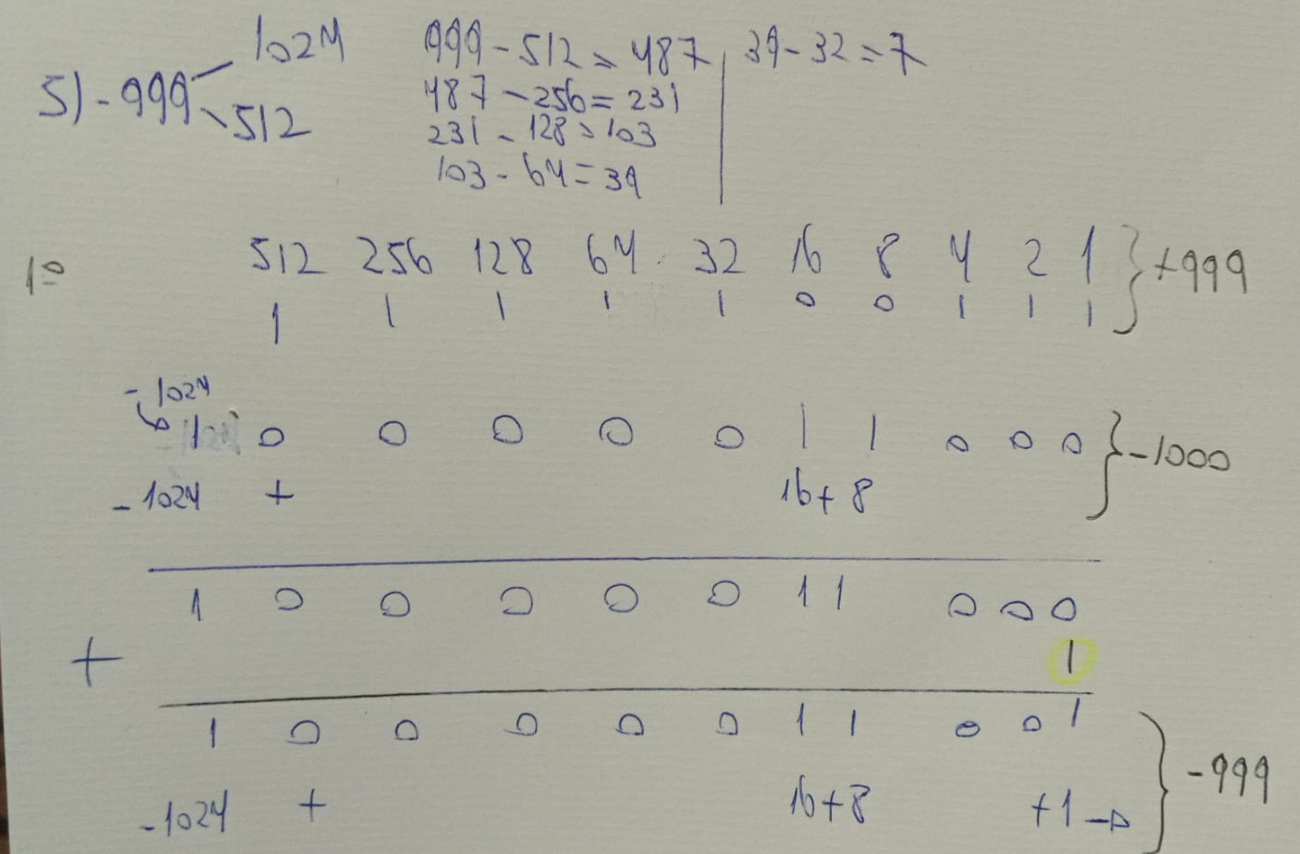 1024
5) -999
512
999 - 512 = 487 | 39 - 32 = 7
487 - 256 = 231
231 - 128 = 103
103 - 64 = 39
1º 512 256 128 64 32 16 8 4 2 1 } +999
1 1 1 1 1 0 0 1 1 1
-1024
1 0 0 0 0 0 1 1 0 0 0 } -1000
-1024 + 16 + 8
1 0 0 0 0 0 1 1 0 0 0
+ 1
1 0 0 0 0 0 1 1 0 0 1
-1024 + 16+8 +1 → } -999